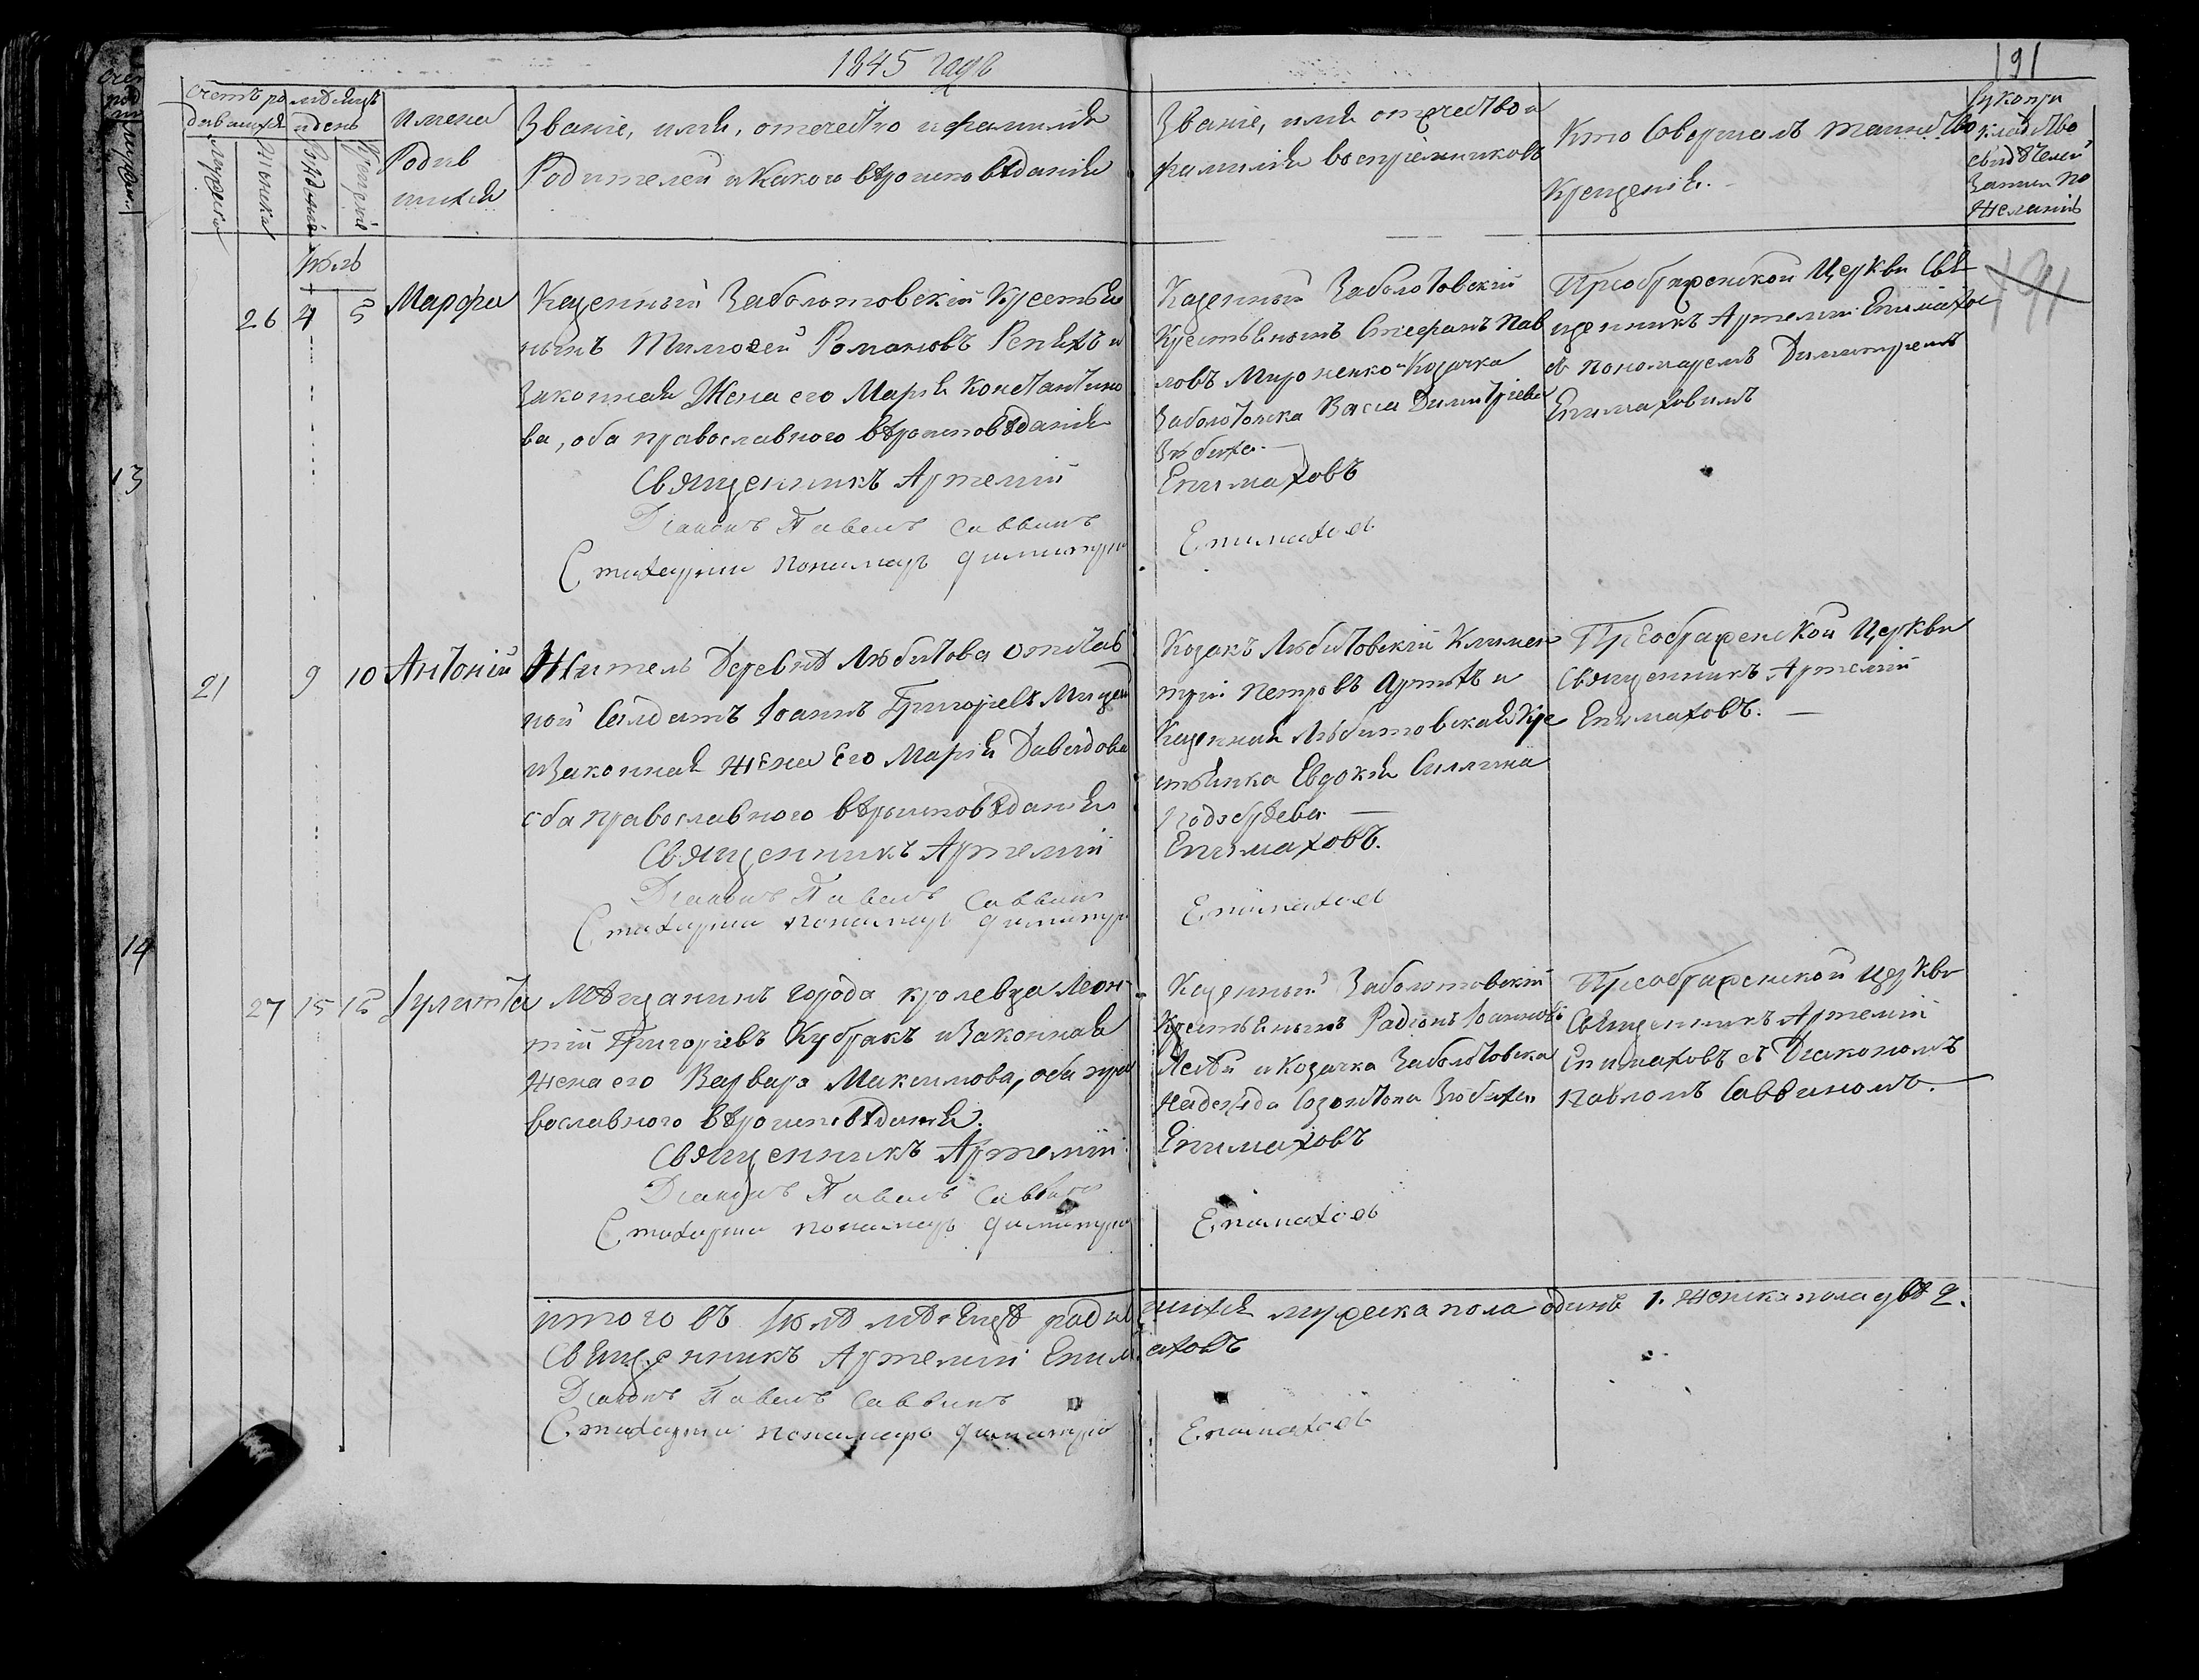 1845 года
191
Счетъ ро
дившихся
мѣсяцъ
и день
Мужеска
Женска
Рожденія
Крещенія
Имена
Родив
шихся
Званіе, имя, отечество и фамилия
Родителей и какого вѣроисповѣданія
Званіе, имя отечество и
фамилия воспріемниковъ
Кто совершалъ таинство
Крещенія.
Рукопри
кладство
свидѣтелей
записи по
желанію
Июль
26 4 5 Марфа
Казенный Заболотовскій Крестья
нинъ Тимофей Романовъ Репяхъ и
Законная Жена его Марія Константино
ва, оба православного вѣроисповѣданія
Священникъ Артемій
Діаконъ Павелъ Саввинъ
Стихарный пономарь Димитрій
Казенный Заболотовскій
Крестьянинъ Стефанъ Пав
ловъ Мироненко и Козачка
Заболотовска Васса Димитріева
Епимаховъ
Епимаховъ
Преображенской Церкви Свя
щенникъ Артемій Епимахов
съ пономаремъ Димитріемъ
Епимаховымъ
191
21 9 10 Антоній
Житель Деревнѣ Любитова отстав
ной Солдатъ Іоаннъ Григорьевъ Мищен
и Законная жена Его Марія Давыдова
оба православного вѣроисповѣданія
Священникъ Артемій
Діаконъ Павелъ Саввинъ
Стихарный пономарь Димитрій
Козакъ Любитовскій Климен
тій Петровъ и
Казенная Любитовская Кре
стьянка Евдокія
Епимаховъ.
Епимаховъ
Преображенской Церкви
Священникъ Артемій
Епимаховъ.
27 15 16 Іулитта
Мѣщанинъ города Кролевца Леон
тій Григорьевъ Кубракъ и Законная
жена его Варвара Максимова, оба пра
вославного вѣроисповѣданія.
Священникъ Артемій
Діаконъ Павелъ Саввинъ
Стихарный пономарь Димитрій
Казенный Заболотовскій
Крестьянинъ Радіонъ Іоанновъ
и Козачка Заболотовска
Надежда
Епимаховъ
Епимаховъ
Преображенской Церкви
Священникъ Артемій
Епимаховъ съ Діакономъ
Павломъ Саввиномъ.
Итого въ Июлѣ мѣсяцѣ родив шихся мужеска пола одинъ 1. женска пола двѣ 2.
Священникъ Артемій Епим аховъ
Діаконъ Павелъ Саввинъ
Стихарный пономарь Димитрій Епимаховъ
13
14